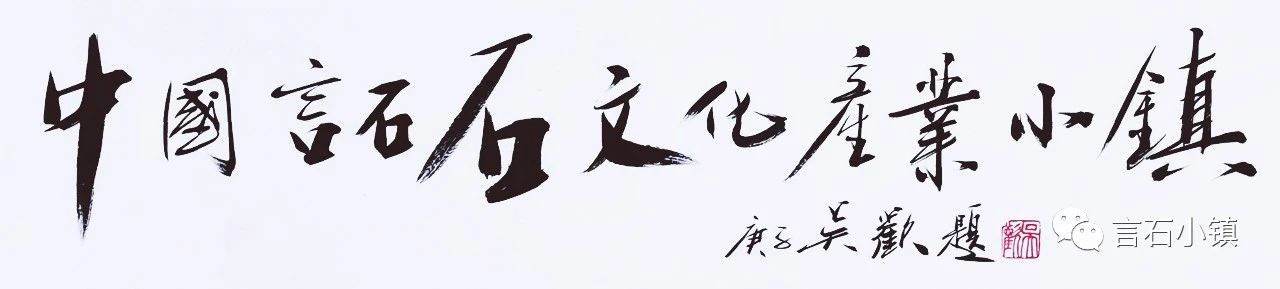 中國言石石文化產業小鎮
庚子吴歡題 言石小镇